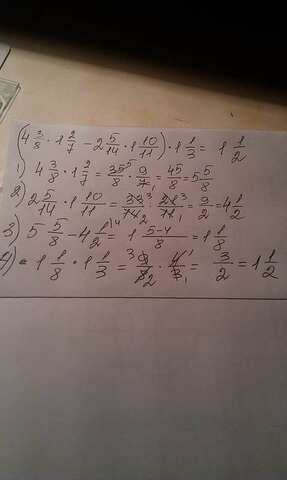 (4 3/8 · 1 2/7 - 2 5/14 · 1 10/11) · 1 1/3 = 1 1/2
1) 4 3/8 · 1 2/7 = 35 5/8 · 9/7 1 = 45/8 = 5 5/8
2) 2 5/14 · 1 10/11 = 33 3/14 2 · 21 3/11 1 = 9/2 = 4 1/2
3) 5 5/8 - 4 1/2 \4 = 1 5-4/8 = 1 1/8
4) 1 1/8 · 1 1/3 = 3 9/8 2 · 4 1/3 1 = 3/2 = 1 1/2